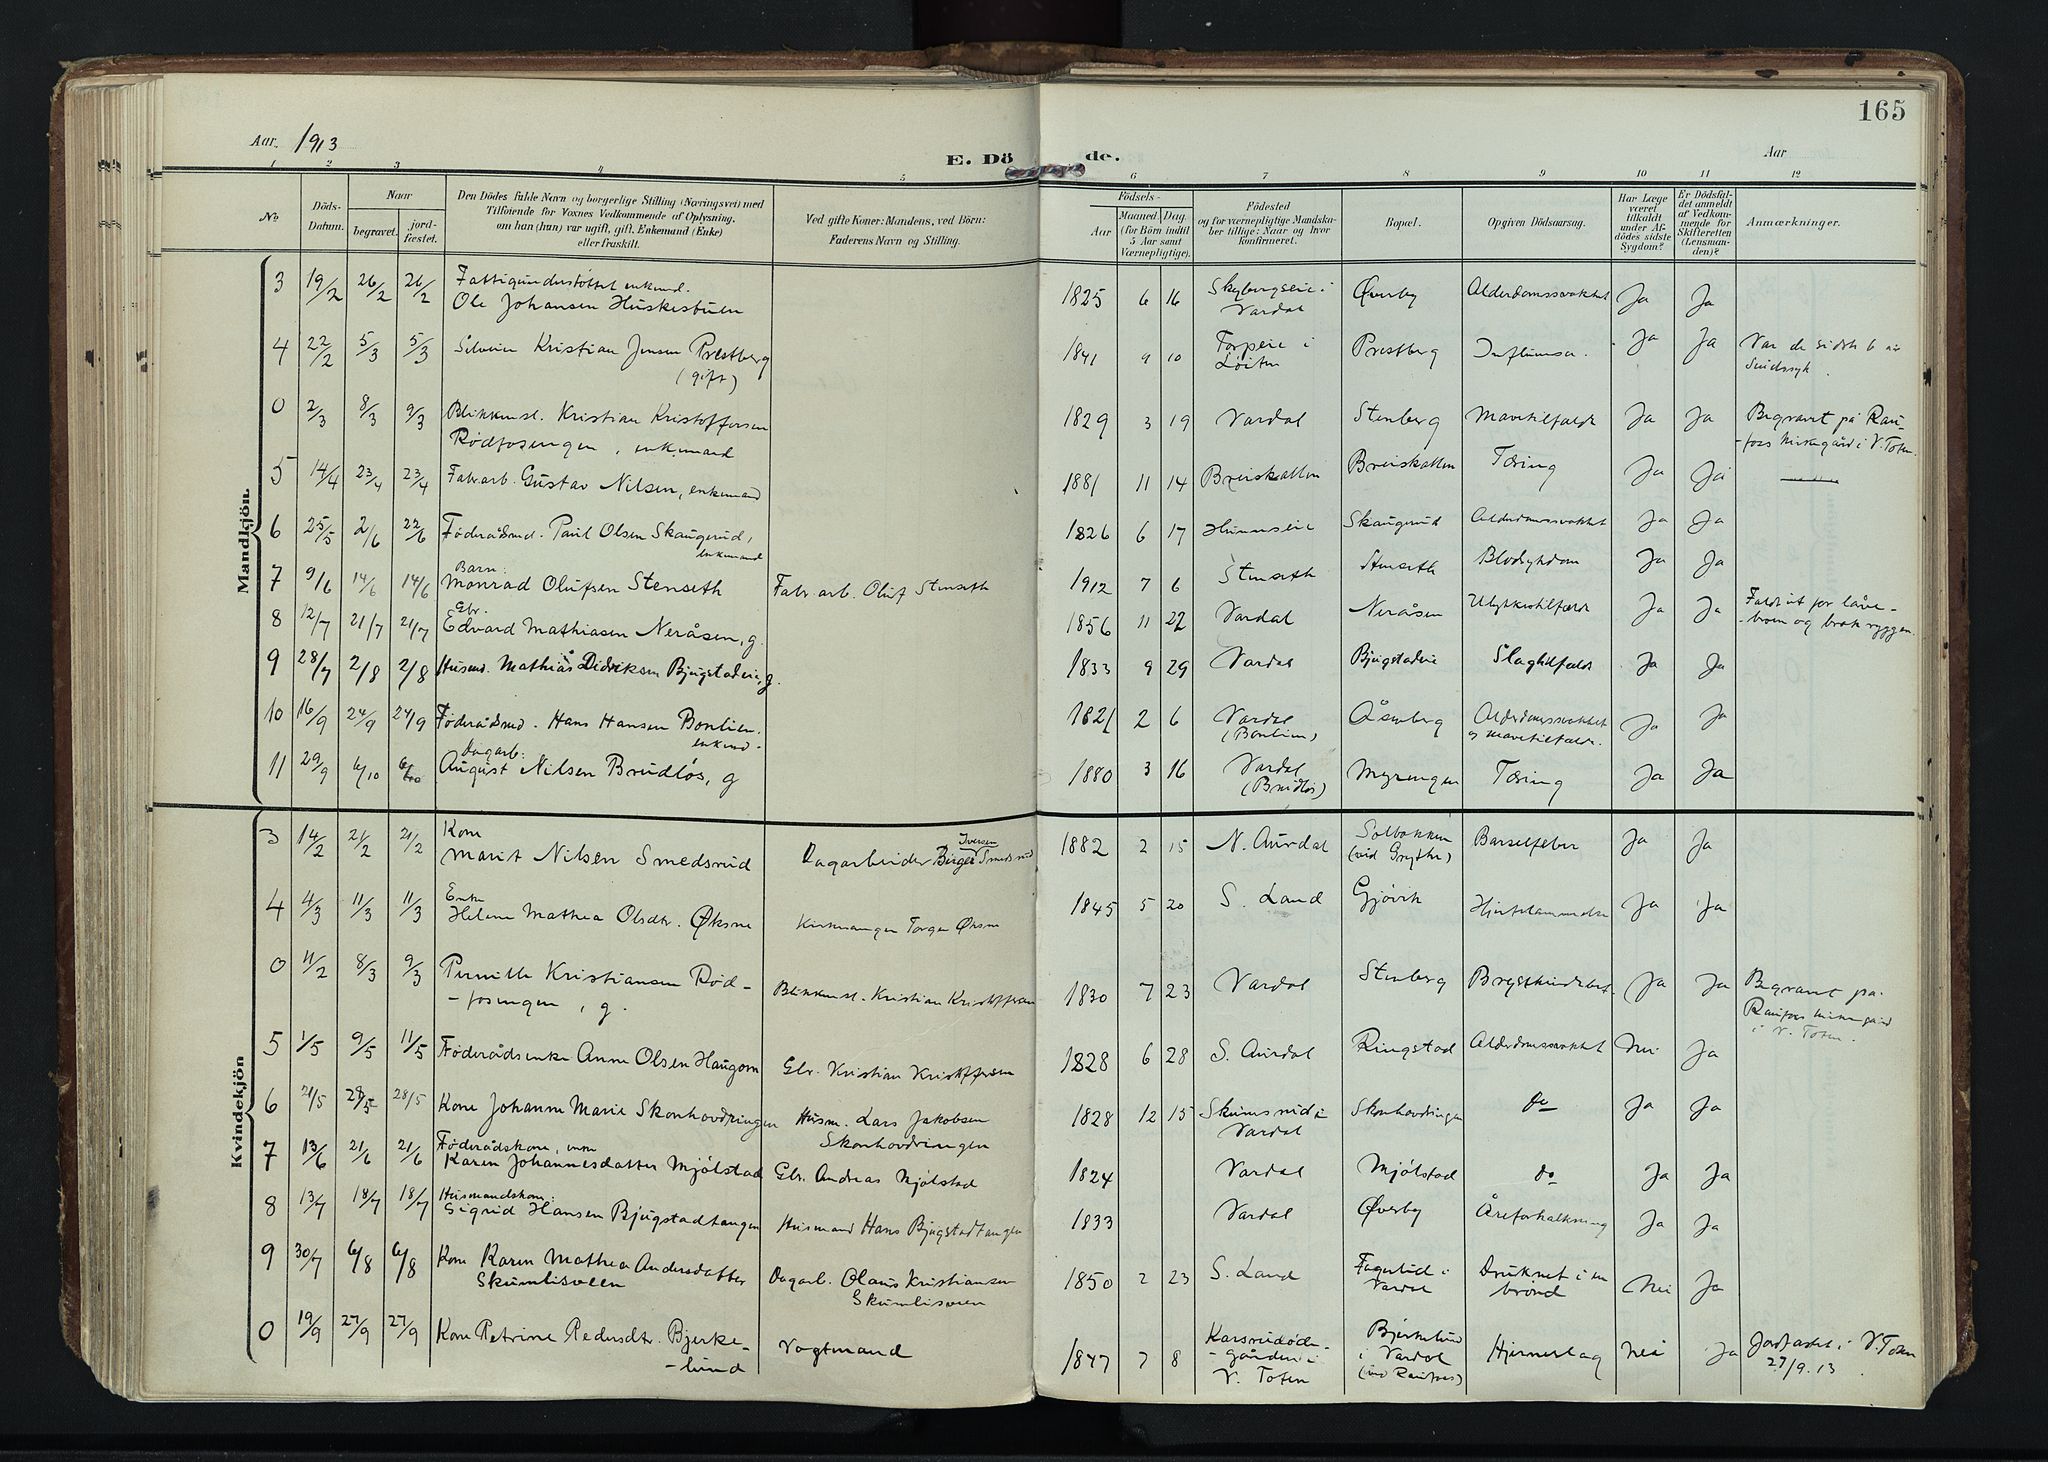 165
Aar. 1913
E. Döde.
Aar
1 2 3 4 5 6 7 8 9 10 11 12
No
Döds-Datum.
Naar
begravet.
jord-fæstet.
Den Dödes fulde Navn og borgerlige Stilling (Næringsvei) med
Tilföiende for Voxnes Vedkommende af Oplysning,
om han (hun) var ugift, gift, Enkemand (Enke)
eller fraskilt.
Ved gifte Koner: Mandens, ved Börn:
Faderens Navn og Stilling.
Födsels-
Aar
Maaned. Dag.
(for Börn indtil
5 Aar samt
Værnepligtige).
Födested
og for værnepligtige Mandska-
ber tillige: Naar og hvor
konfirmeret.
Bopæl.
Opgiven Dödsaarsag.
Har Læge
været
tilkaldt
under Af-
dödes sidste
Sygdom?
Er Dödsfal-
det anmeldt
af Vedkom-
mende for
Skifteretten
(Lensman-
den)?
Anmærkninger.
Mandkjön.
3 19/2 26/2 26/2 Fattigunderstøttet enkemd.
Ole Johansen Huskestuen 1825 6 16 Skybergseie i
Vardal Øverby Alderdomssvakhet Ja Ja
4 22/2 5/3 5/3 Kristian Jensen Prestberg
(gift) 1841 9 10 Torpseie i
Løiten Prestberg Influensa. Ja Ja Var de sidste 6 år
Sindssyk.
0 2/3 8/3 9/3 Blikkensl. Kristian Kristoffersen
Rødfosengen, enkemand 1829 3 19 Vardal Stenberg Mavetilfælde Ja Ja Begravet på Rau-
-fos kirkegård i V. Toten.
5 14/4 23/4 23/4 Fabr.arb. Gustav Nilsen, enkemand 1881 11 14 Breiskallen Breiskallen Tæring Ja Ja
6 25/5 2/6 22/6 Føderådsmd. Paul Olsen Skaugerud,
enkemand 1826 6 17 Hunnseie Skaugerud Alderdomssvakhet Ja Ja
7 9/6 14/6 14/6 Barn:
Monrad Olufsen Stenseth Fabr.arb. Oluf Stenseth 1912 7 6 Stenseth Stenseth Blodsykdom Ja Ja
8 12/7 21/7 21/7 Gbr.
Edvard Mathiasen Neråsen, g. 1856 11 22 Vardal Neråsen Ulykkestilfælde Ja Ja Faldt ut for låve-
-broen og brak ryggen.
9 28/7 2/8 2/8 Husmd. Mathias Didriksen Bjugstadeie, g. 1833 9 29 Vardal Bjugstadeie Slagtilfælde Ja Ja
10 16/9 24/9 24/9 Føderådsmd. Hans Hansen Bonlien.
enkemd. 1821 2 6 Vardal
(Bonlien) Åsenberg Alderdomssvakhet
og mavetilfælde. Ja Ja
11 29/9 6/10 6/10 Dagarb:
August Nilsen Brudløs, g 1880 3 16 Vardal
(Brudløs) Myrengen Tæring Ja Ja
Kvindekjön
3 14/2 21/2 21/2 Kone
Marit Nilsen Smedsrud Dagarbeider Birger Iversen Smedsrud 1882 2 15 N. Aurdal Solbakken
(ved Grythe) Barselfeber Ja Ja
4 4/3 11/3 11/3 Enke
Helene Mathea Olsdtr. Øksne Kirkesanger Torger Øksne 1845 5 20 S. Land Gjøvik Hjertelammelse Ja Ja
0 11/2 8/3 9/3 Pernille Kristiansen Rød-
-fosengen, g. Blikkensl. Kristian Kristoffersen 1830 7 23 Vardal Stenberg Ja Ja Begravet på
Raufoss kirkegård
i V. Toten.
5 1/5 9/5 11/5 Føderådsenke Anne Olsen Haugom Gbr. Kristian Kristoffersen 1828 6 28 S. Aurdal Ringstad Alderdomssvakhet Nei Ja
6 21/5 28/5 28/5 Kone Johanne Marie Skonhovdringen Husm. Lars Jakobsen
Skonhovdringen 1828 12 15 Skumsrud i
Vardal Skonhovdringen Do Ja Ja
7 13/6 21/6 21/6 Føderådskone, enke
Karen Johannesdatter Mjølstad Gbr. Andreas Mjølstad 1824 Vardal Mjølstad Do Ja Ja
8 13/7 18/7 18/7 Husmandskone:
Sigrid Hansen Bjugstadtangen Husmand Hans Bjugstadtangen 1833 Vardal Øverby Åreforkalkning Ja Ja
9 30/7 6/8 6/8 Kone Karen Mathea Andersdatter
Skumlisveen Dagarb. Olaus Kristiansen
Skumlisveen 1850 2 23 S. Land Fagerlid i
Vardal Druknet i en
brønd Nei Ja
0 19/9 27/9 27/9 Kone Petrine Pedersdtr. Bjerke-
-lund Vogtmand 1847 7 8 Karsrudøde-
-gården i
V. Toten Bjerkelund
i Vardal
(ved Raufoss) Hjerneslag Nei Ja Jordfæstet i V. Toten
27/9.13